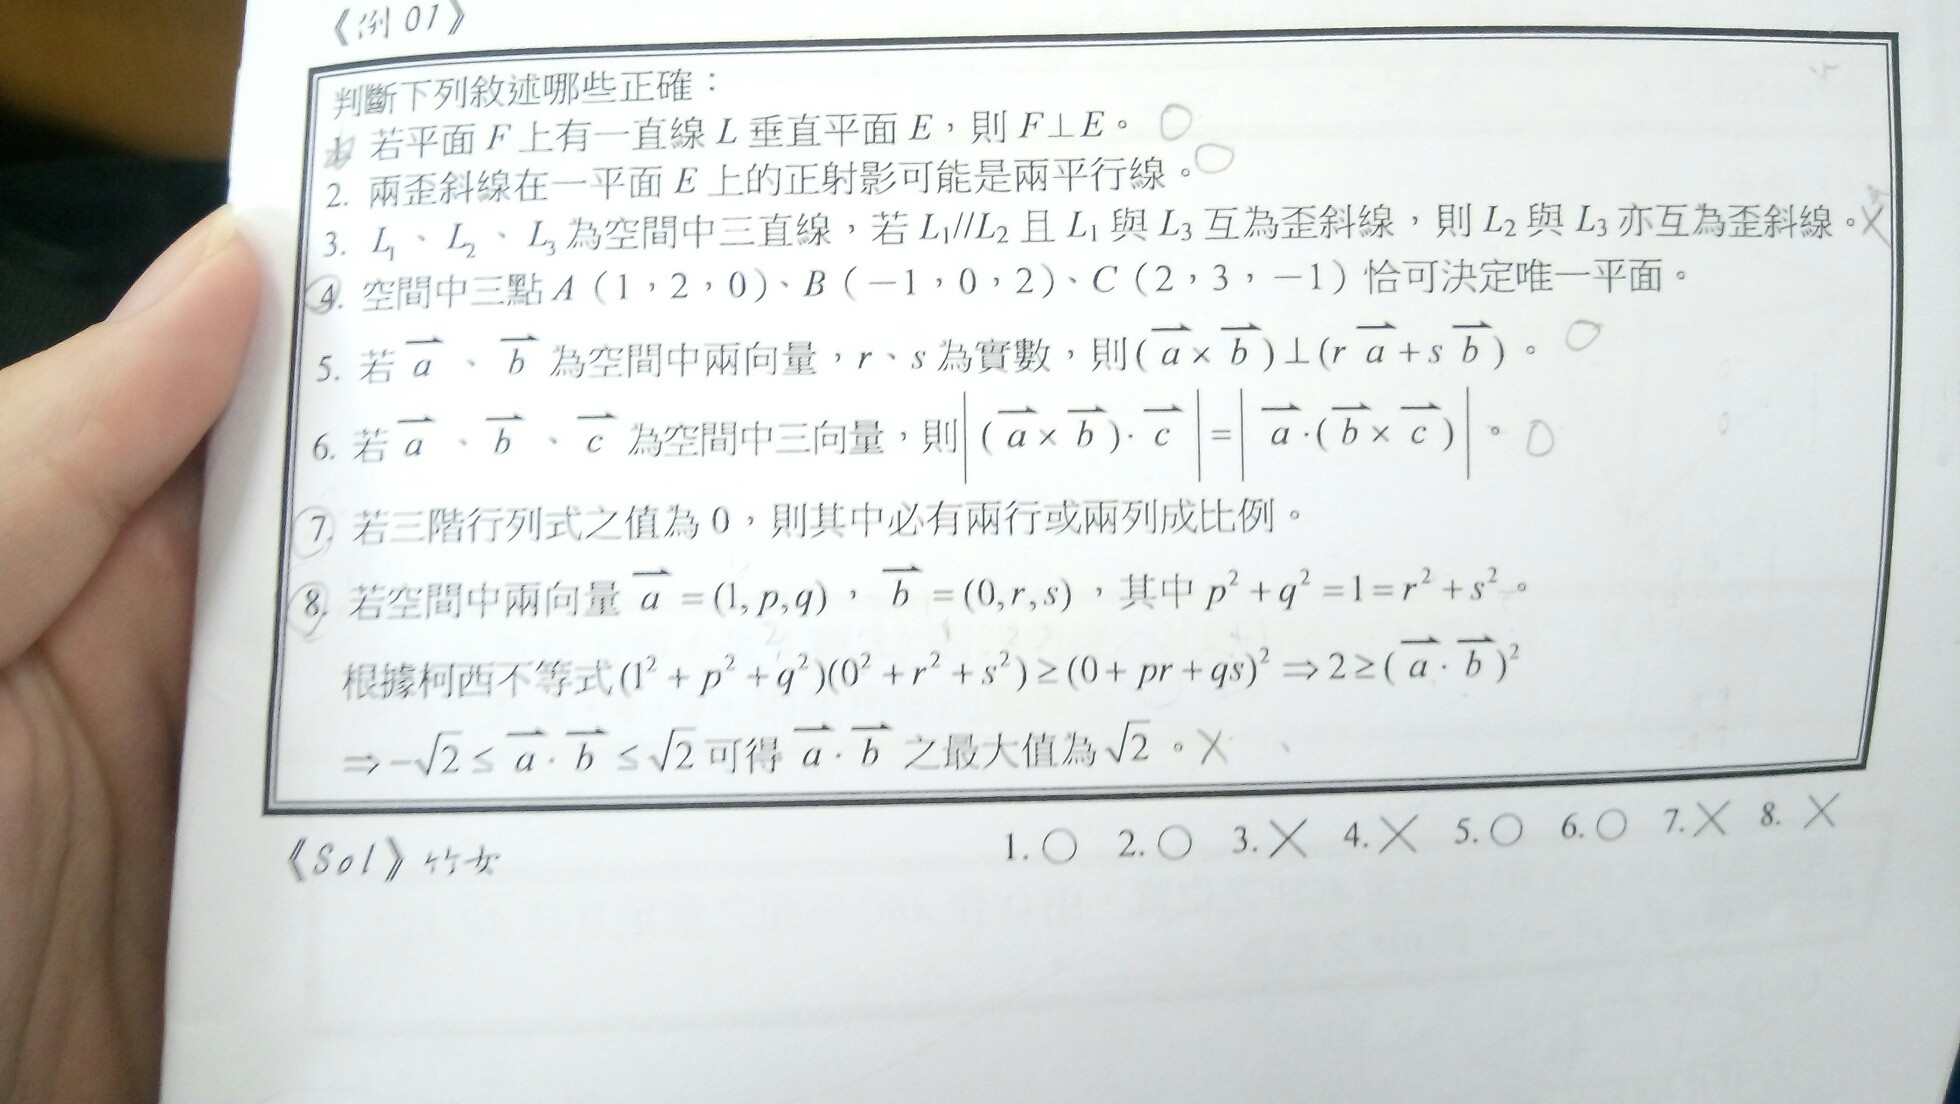 《例01》
判斷下列敘述哪些正確：
若平面 F 上有一直線 L 垂直平面 E，則 F⊥E。○
2. 兩歪斜線在一平面 E 上的正射影可能是兩平行線。○
3. L₁、L₂、L₃ 為空間中三直線，若 L₁//L₂ 且 L₁ 與 L₃ 互為歪斜線，則 L₂ 與 L₃ 亦互為歪斜線。×
4. 空間中三點 A（1，2，0）、B（－1，0，2）、C（2，3，－1）恰可決定唯一平面。
5. 若 a⃗、b⃗ 為空間中兩向量，r、s 為實數，則(a⃗×b⃗)⊥(r a⃗+s b⃗)。○
6. 若 a⃗、b⃗、c⃗ 為空間中三向量，則|(a⃗×b⃗)·c⃗|=|a⃗·(b⃗×c⃗)|。○
7. 若三階行列式之值為 0，則其中必有兩行或兩列成比例。
8. 若空間中兩向量 a⃗=(1,p,q)，b⃗=(0,r,s)，其中 p²+q²=1=r²+s²。
根據柯西不等式(1²+p²+q²)(0²+r²+s²)≥(0+pr+qs)²⇒2≥(a⃗·b⃗)²
⇒-√2≤a⃗·b⃗≤√2 可得 a⃗·b⃗ 之最大值為√2。×
《Sol》竹女
1.○ 2.○ 3.× 4.× 5.○ 6.○ 7.× 8.×